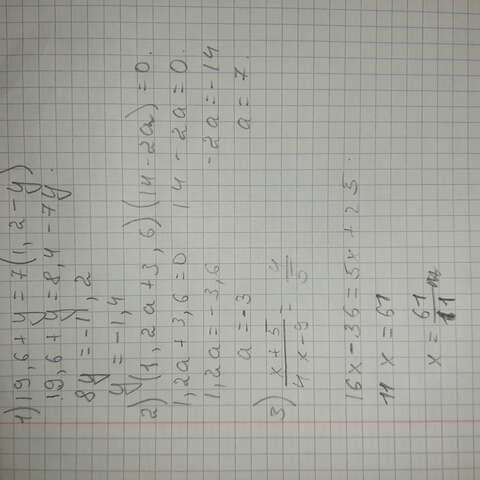 1) 19,6 + y = 7(1,2 - y)
19,6 + y = 8,4 - 7y.
8y = -11,2
y = -1,4
2) (1,2a + 3,6)(14 - 2a) = 0.
1,2a + 3,6 = 0 14 - 2a = 0.
1,2a = -3,6 -2a = -14
a = -3 a = 7.
3) \frac{x+5}{4x-9} = \frac{4}{5}
16x - 36 = 5x + 25.
11x = 61
x = \frac{61}{11}